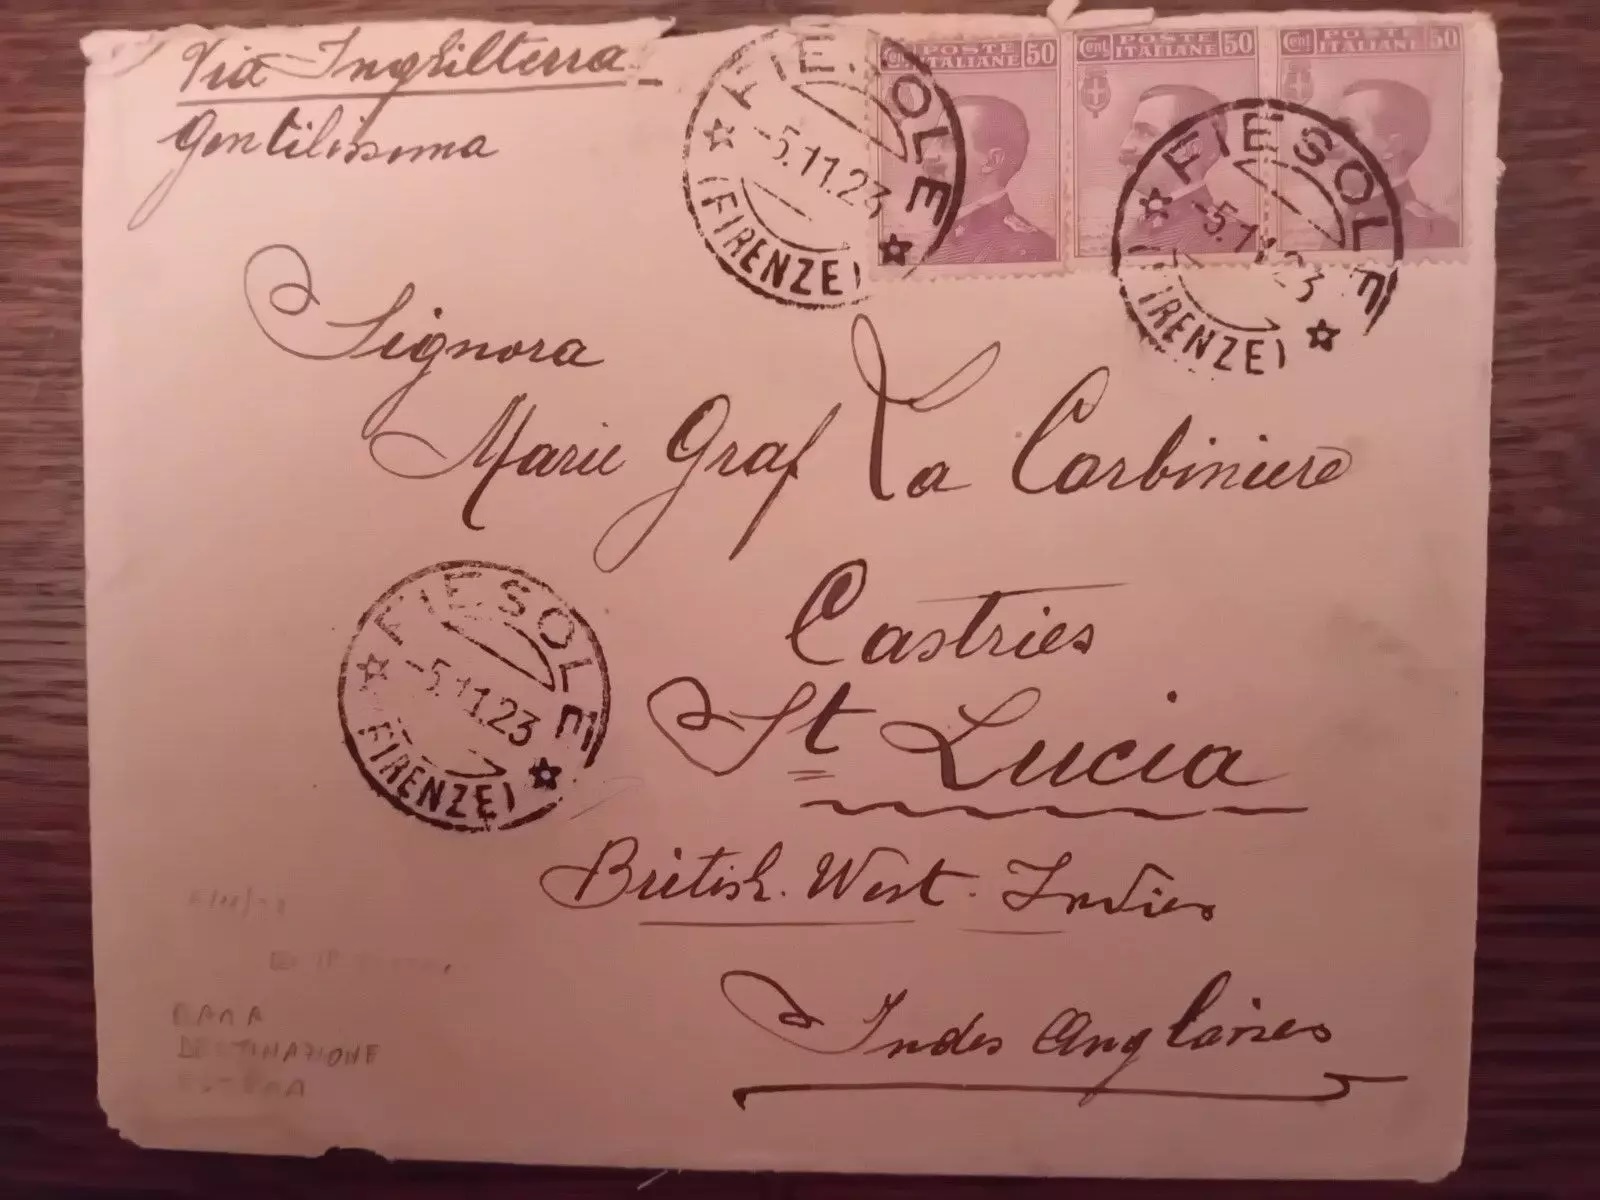 Via Inghilterra
Gentilissima
Cent. POSTE ITALIANE 50
Cent. POSTE ITALIANE 50
Cent. POSTE ITALIANE 50
FIESOLE
-5.11.23
(FIRENZE)
FIESOLE
-5.11.23
(FIRENZE)
Signora
Marie Graf La Corbiniere
Castries
St Lucia
British. West. Indies
Indes Anglaises
FIESOLE
-5.11.23
(FIRENZE)
RARA
DESTINAZIONE